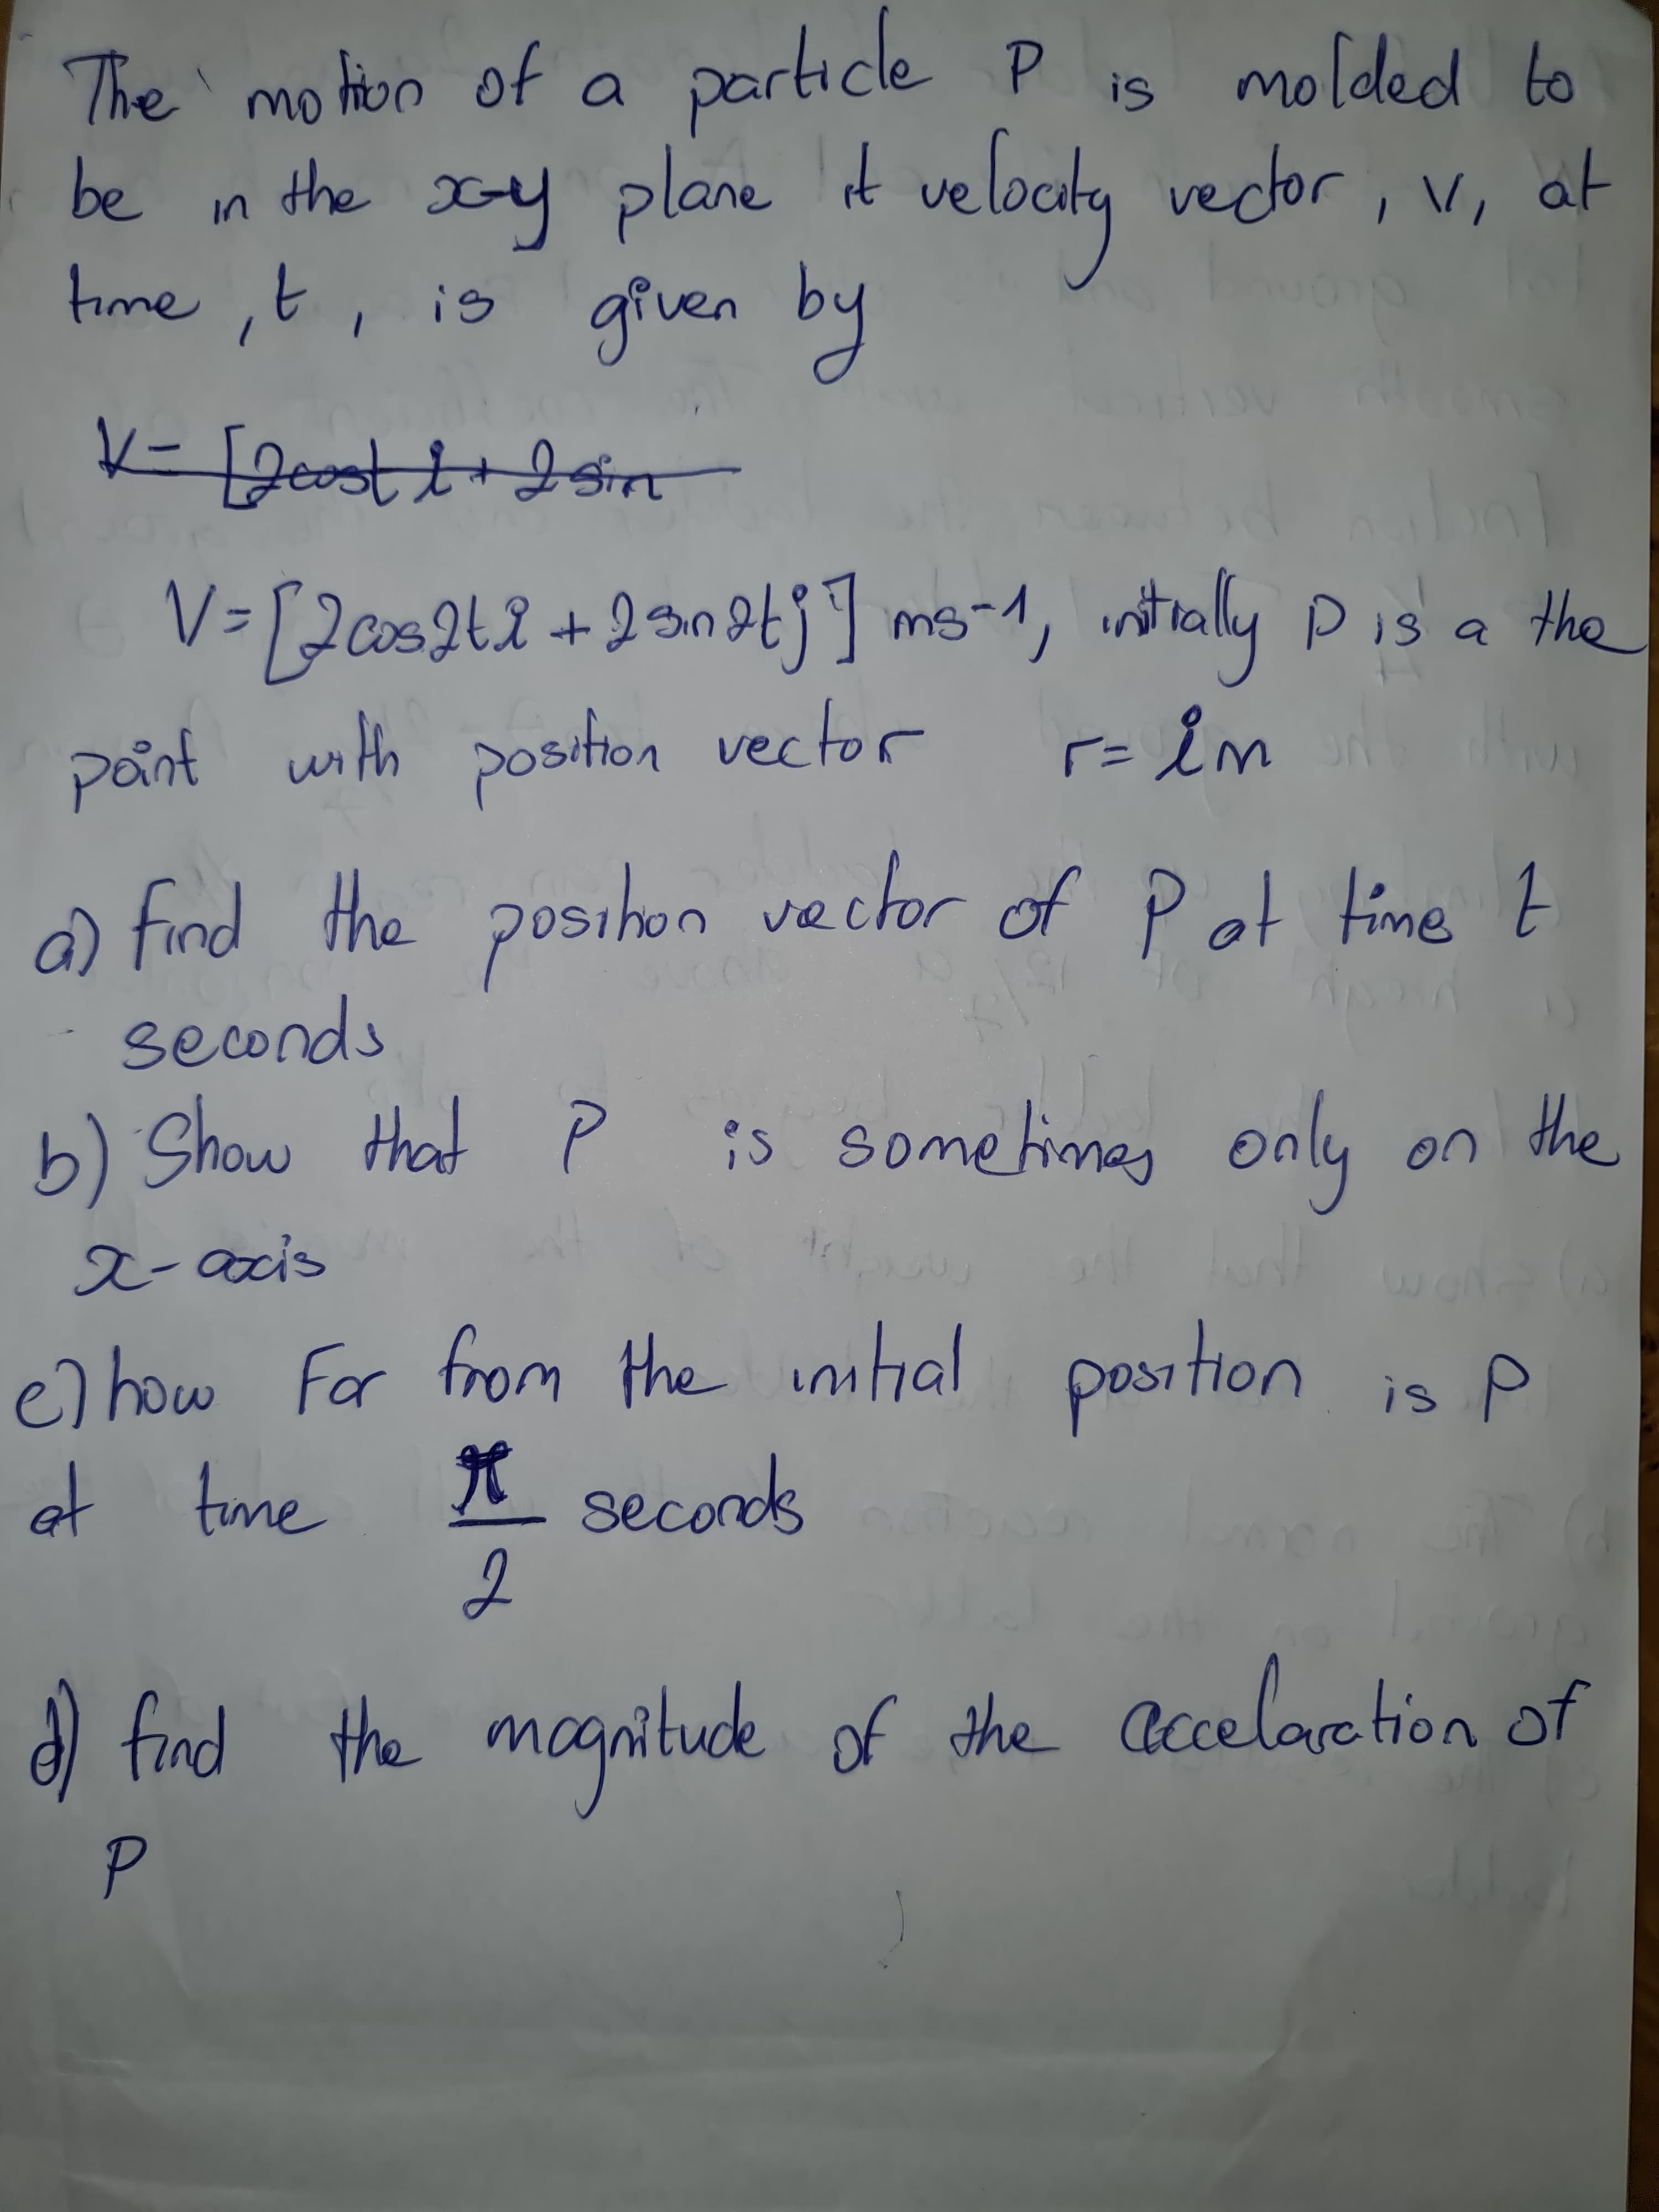 The motion of a particle P is molded to
be in the x-y plane it velocity vector, v, at
time, t, is given by
V= [2cost i + 2 sin
V= [2cos2t i + 2 sin2t j] ms-1, initially P is a the
point with position vector r= i m
a) find the position vector of P at time t
seconds
b) Show that P is sometimes only on the
x-axis
c) how Far from the initial position is P
at time π/2 seconds
d) find the magnitude of the accelaration of
P